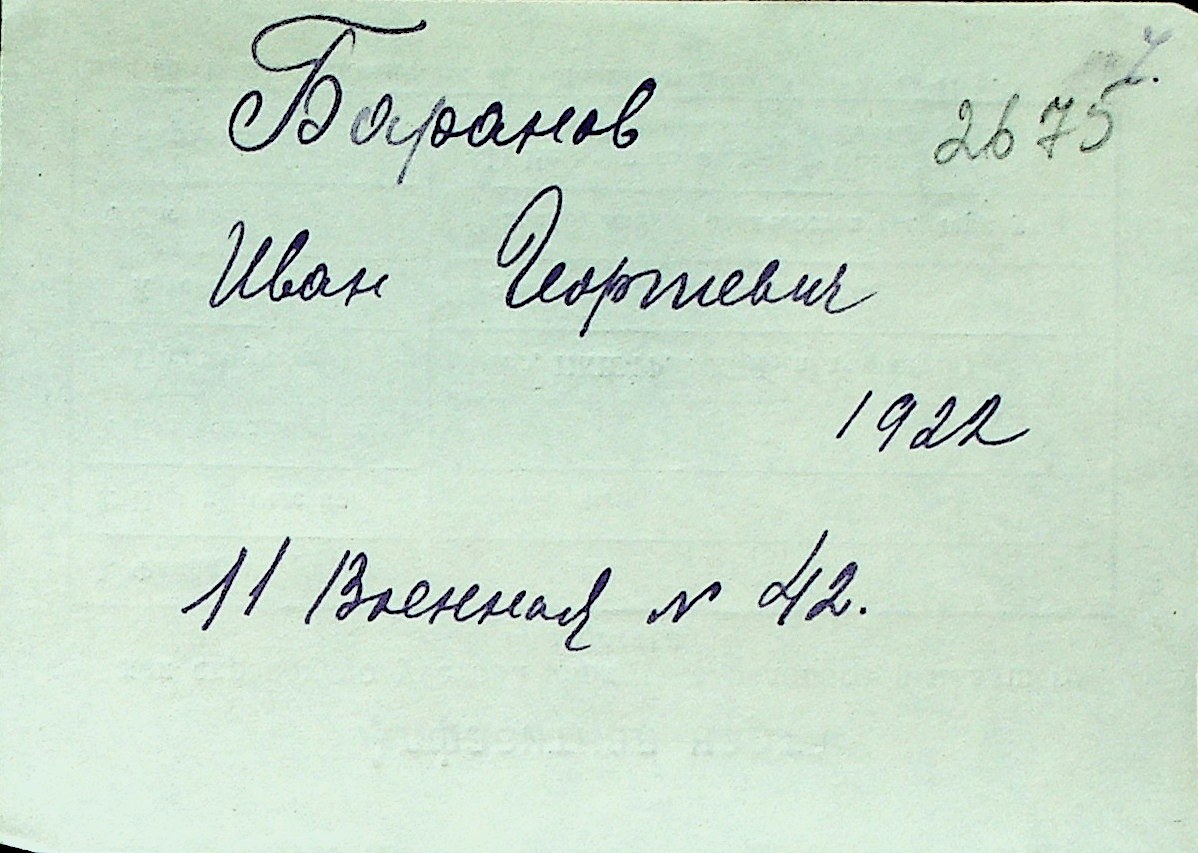 Баранов 2675
Иван Георгиевич
1922
11 Военная № 42.